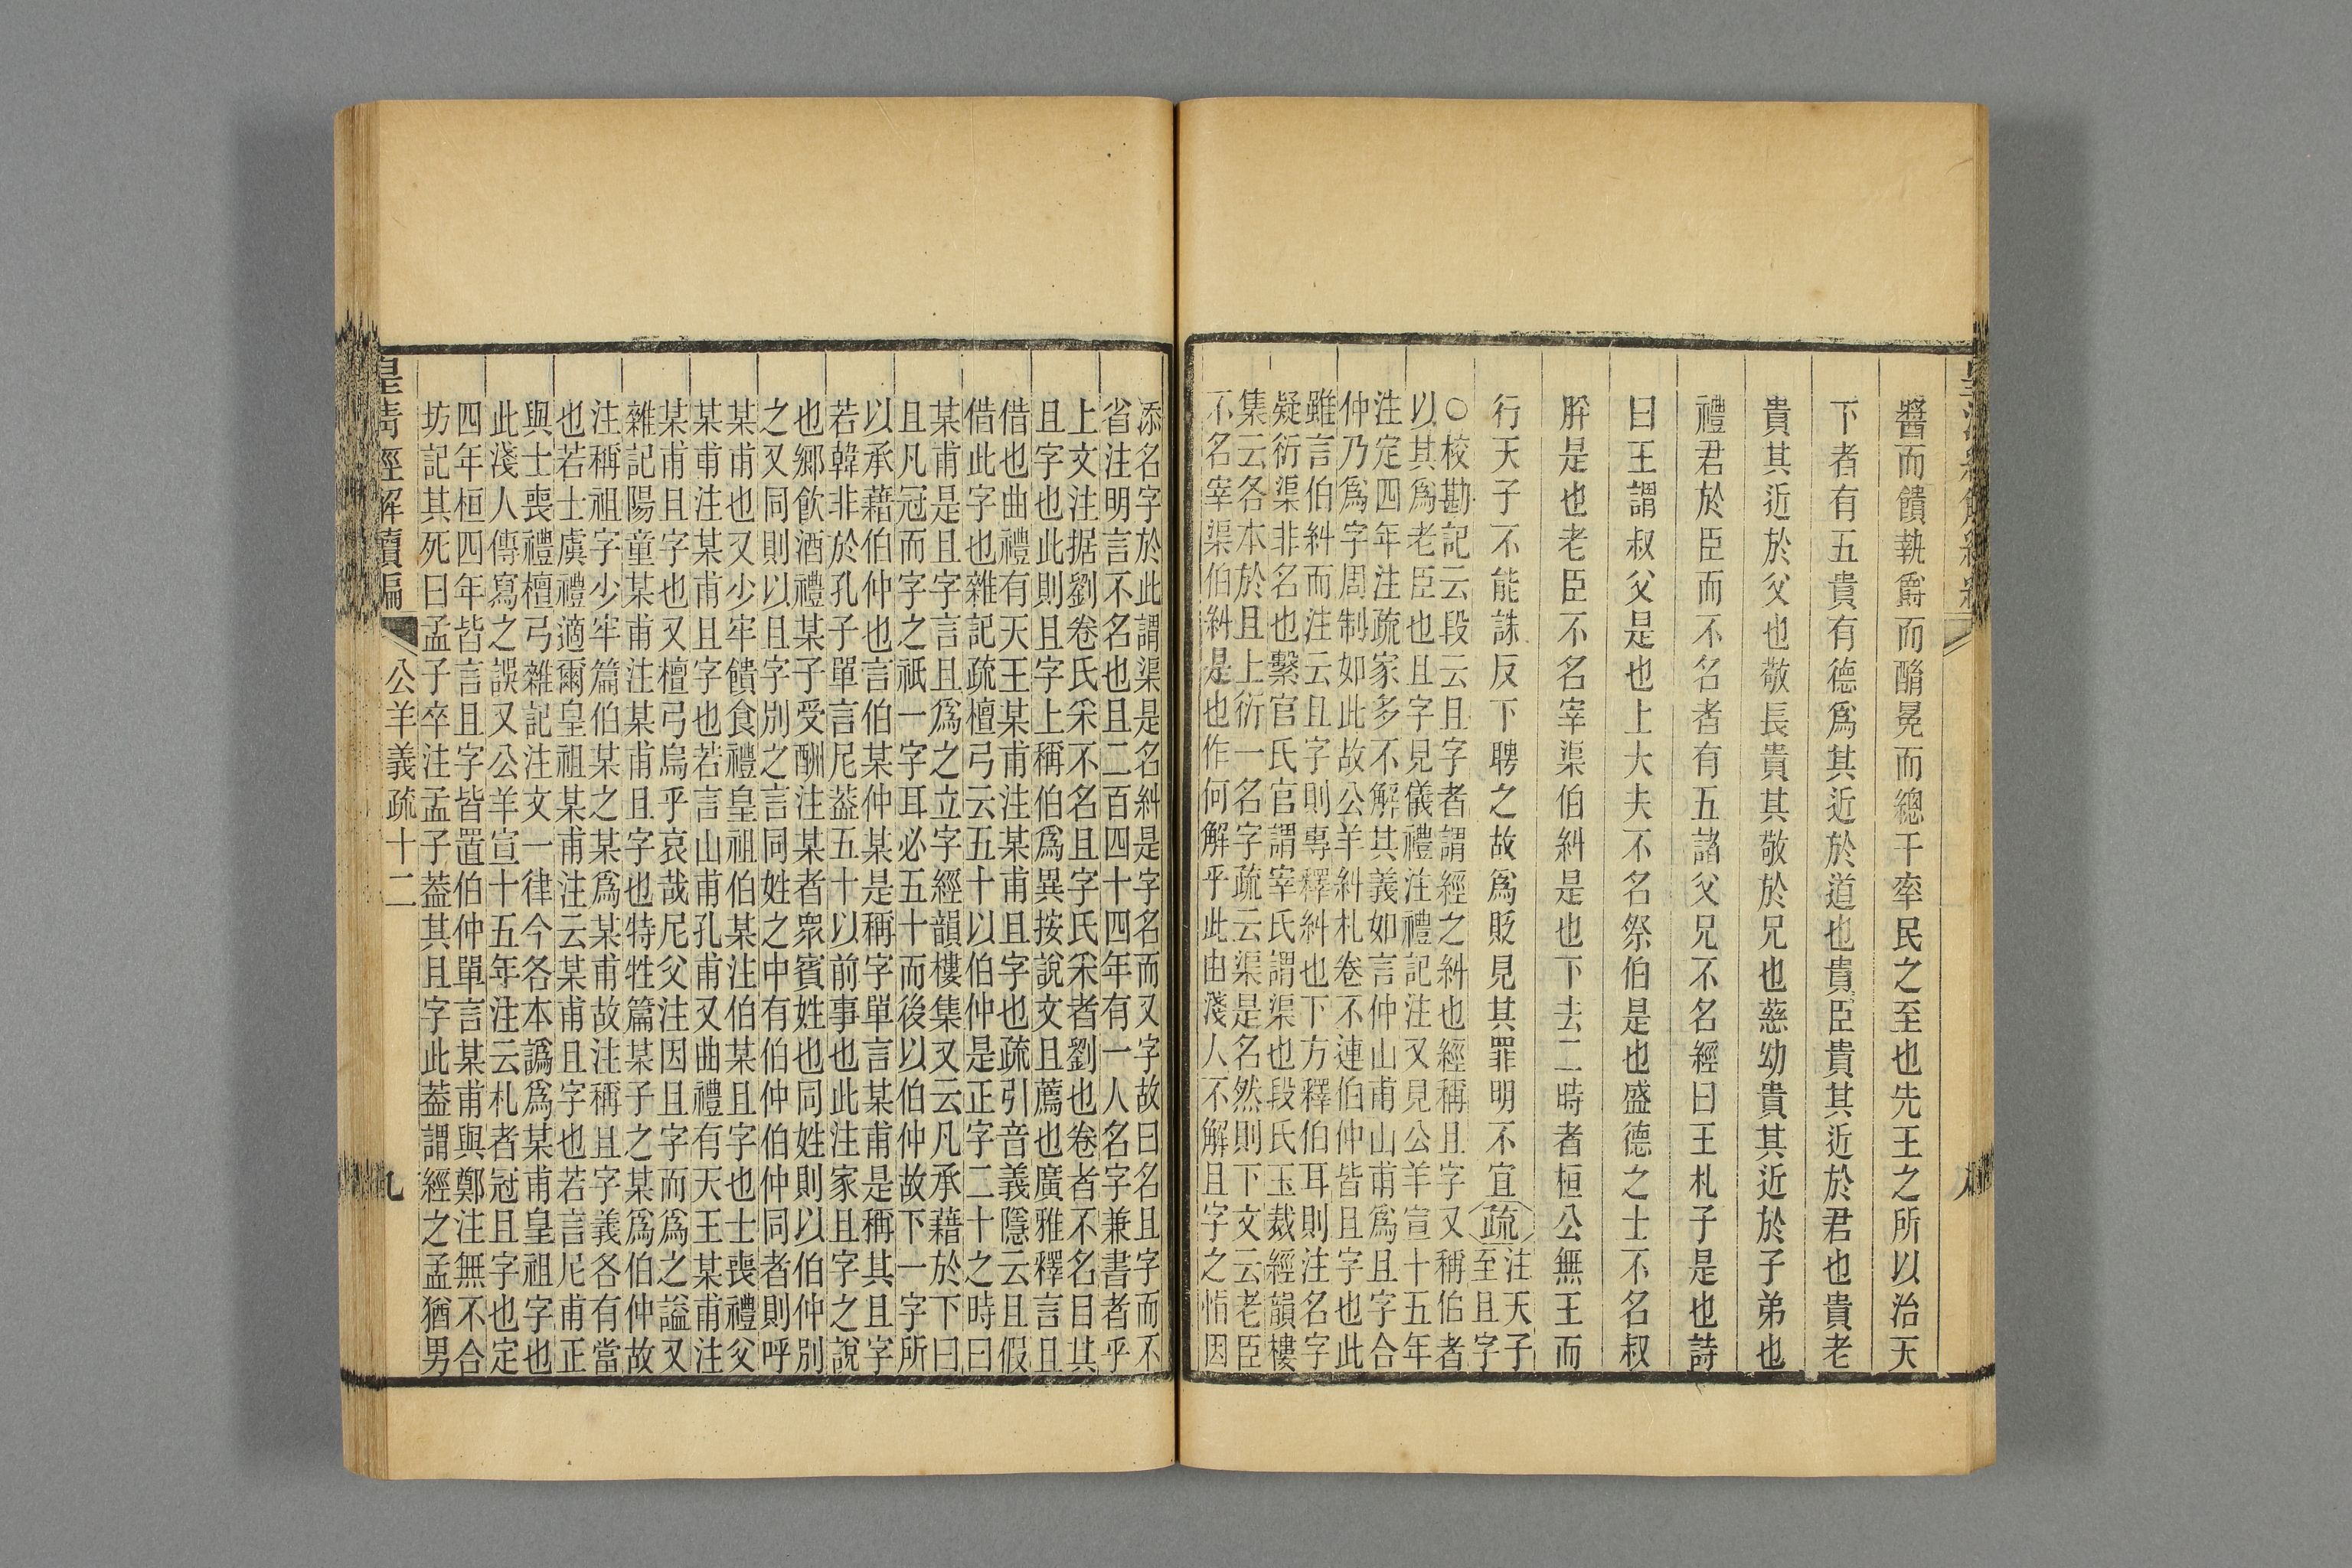 醬而饋執爵而酳冕而緫干率民之至也先王之所以治天
下者有五貴有德爲其近於道也貴臣貴其近於君也貴老
貴其近於父也敬長貴其敬於兄也慈幼貴其近於子弟也
禮君於臣而不名者有五諸父兄不名經曰王札子是也詩
曰王謂叔父是也上大夫不名祭伯是也盛德之士不名叔
肸是也老臣不名宰渠伯糾是也下去二時者桓公無王而
行天子不能誅反下聘之故爲貶見其罪明不宜疏注天子
至且字
○校勘記云段云且字者謂經之糾也經稱且字又稱伯者
以其爲老臣也且字見儀禮注禮記注又見公羊宣十五年
注定四年注疏家多不解其義如言仲山甫山甫爲且字合
仲乃爲字周制如此故公羊糾札卷不連伯仲皆且字也此
雖言伯糾而注云且字則專釋糾也下方釋伯耳則注名字
疑衍渠非名也繫官氏官謂宰氏謂渠也段氏玉裁經韻樓
集云各本於且上衍一名字疏云渠是名然則下文云老臣
不名宰渠伯糾是也作何解乎此由淺人不解且字之恉因
添名字於此謂渠是名糾是字名而又字故曰名且字而不
省注明言不名也且二百四十四年有一人名字兼書者乎
上文注据劉卷氏采不名且字氏采者劉也卷者不名目其
且字也此則且字上稱伯爲異按說文且薦也廣雅釋言且
借也曲禮有天王某甫注某甫且字也疏引音義隱云且假
借此字也雜記疏檀弓云五十以伯仲是正字二十之時曰
某甫是且字言且爲之立字經韻樓集又云凡承藉於下曰
且凡冠而字之祇一字耳必五十而後以伯仲故下一字所
以承藉伯仲也言伯某仲某是稱字單言某甫是稱其且字
若韓非於孔子單言尼葢五十以前事也此注家且字之說
也鄉飲酒禮某子受酬注某者衆賓姓也同姓則以伯仲別
之又同則以且字別之言同姓之中有伯仲伯仲同者則呼
某甫也又少牢饋食禮皇祖伯某注伯某且字也士喪禮父
某甫注某甫且字也若言山甫孔甫又曲禮有天王某甫注
某甫且字也又檀弓烏乎哀哉尼父注因且字而爲之謚又
雜記陽童某甫注某甫且字也特牲篇某子之某爲伯仲故
注稱祖字少牢篇伯某之某爲某甫故注稱且字義各有當
也若士虞禮適爾皇祖某甫注云某甫且字也若言尼甫正
與士喪禮檀弓雜記注文一律今各本譌爲某甫皇祖字也
此淺人傳寫之誤又公羊宣十五年注云札者冠且字也定
四年桓四年皆言且字皆置伯仲單言某甫與鄭注無不合
坊記其死曰孟子卒注孟子葢其且字此葢謂經之孟猶男
皇清經解續編
公羊義疏十二
九